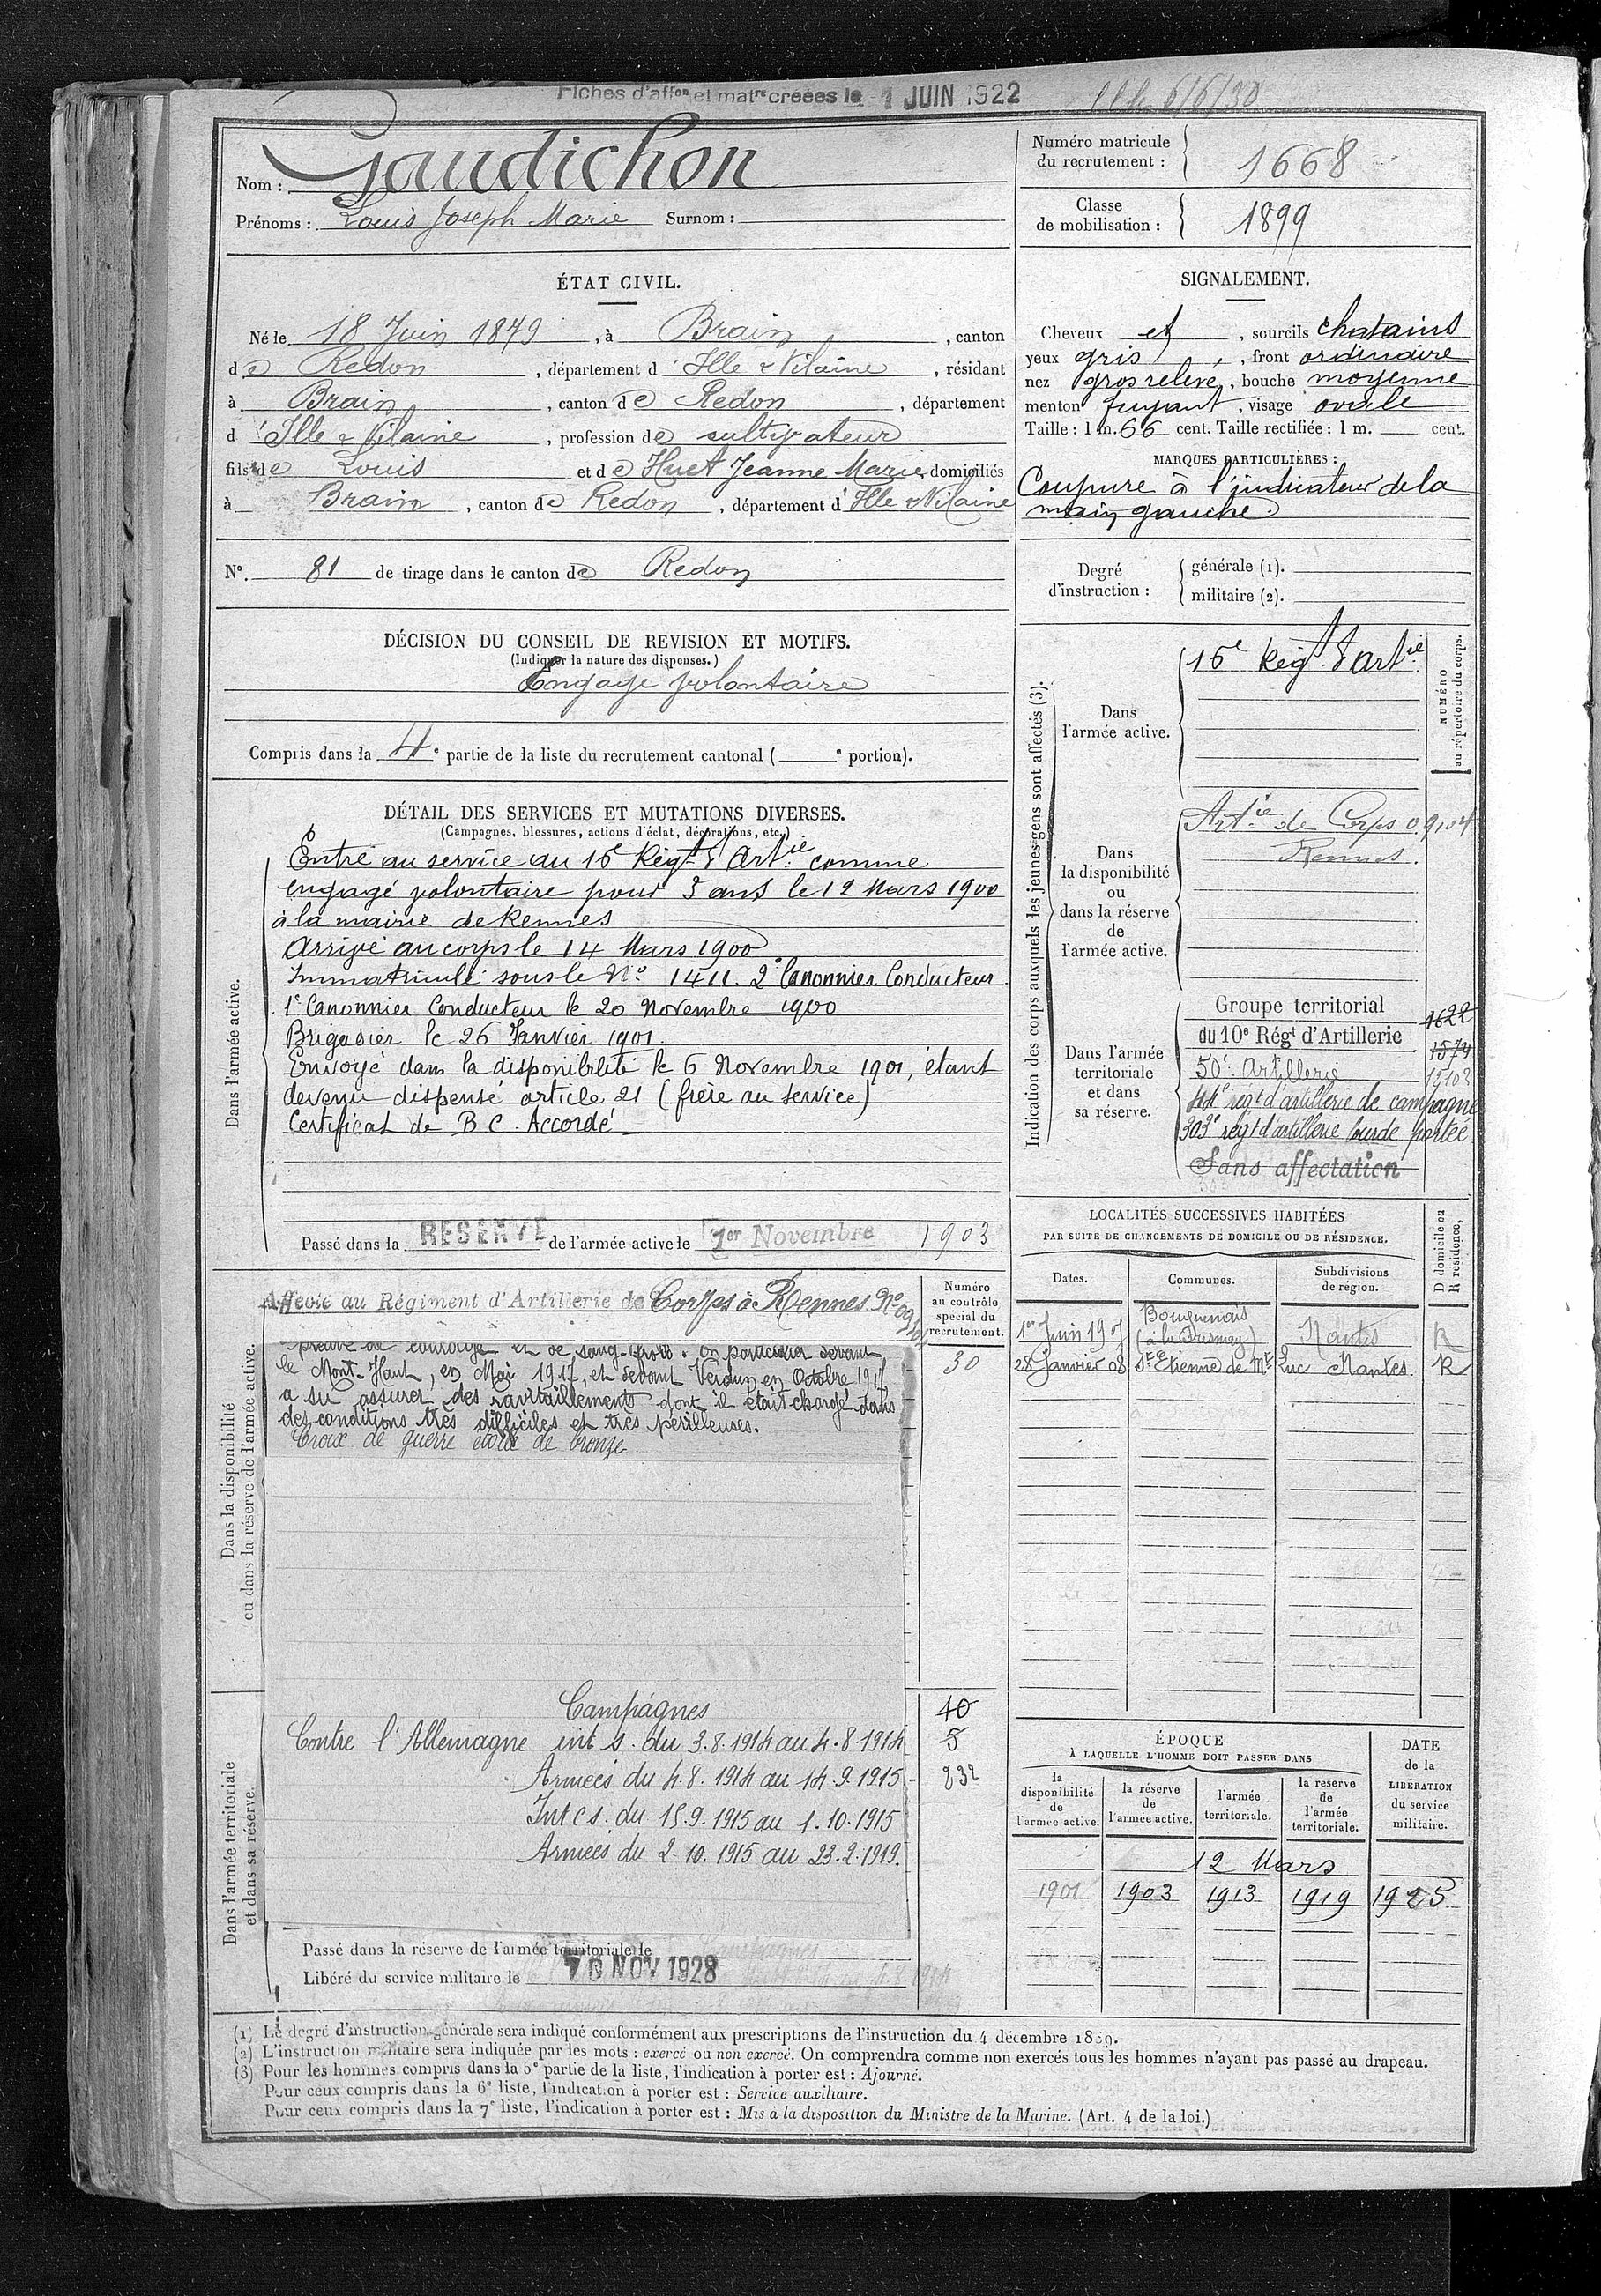 Fiches d'affon et matre créées le 1 JUIN 1922
6/6/30
Nom : Gaudichon
Prénoms : Louis Joseph Marie Surnom :
Numéro matricule du recrutement : 1668
Classe de mobilisation : 1899
ÉTAT CIVIL.
Né le 18 Juin 1879, à Brain, canton
de Redon, département d'Ille & Vilaine, résidant
à Brain, canton de Redon, département
d'Ille & Vilaine, profession de cultivateur
fils de Louis et de Huet Jeanne Marie, domiciliés
à Brain, canton de Redon, département d'Ille & Vilaine
N°. 81 de tirage dans le canton de Redon
SIGNALEMENT.
Cheveux et, sourcils chatains
yeux gris, front ordinaire
nez gros relevé, bouche moyenne
menton fuyant, visage ovale
Taille : 1 m. 66 cent. Taille rectifiée : 1 m. cent.
MARQUES PARTICULIÈRES :
Coupure à l'indicateur de la
main gauche.
Degré d'instruction : générale (1).
militaire (2).
DÉCISION DU CONSEIL DE REVISION ET MOTIFS.
(Indiquer la nature des dispenses.)
Engagé volontaire
Compris dans la 4e partie de la liste du recrutement cantonal ( e portion).
DÉTAIL DES SERVICES ET MUTATIONS DIVERSES.
(Campagnes, blessures, actions d'éclat, décorations, etc.)
Dans l'armée active.
Entré au service au 15e Régt d'Artie comme
engagé volontaire pour 3 ans le 12 Mars 1900
à la mairie de Rennes
Arrivé au corps le 14 Mars 1900
Immatriculé sous le No 1411. 2e Canonnier Conducteur.
1e Canonnier Conducteur le 20 Novembre 1900
Brigadier le 26 Janvier 1901.
Envoyé dans la disponibilité le 6 Novembre 1901, étant
devenu dispensé article 21 (frère au service)
Certificat de B.C. Accordé
Passé dans la RESERVE de l'armée active le 1er Novembre 1903
Indication des corps auxquels les jeunes gens sont affectés (3).
NUMÉRO au répertoire du corps.
Dans l'armée active.
15e Régt d'Artie
Dans la disponibilité ou dans la réserve de l'armée active.
Artie de Corps 09104
Rennes.
Dans l'armée territoriale et dans sa réserve.
Groupe territorial 1622
du 10e Régt d'Artillerie 1574
50e Artillerie 12102
44e régt d'artillerie de campagne
303e régt d'artillerie lourde portée
Sans affectation
Dans la disponibilité ou dans la réserve de l'armée active.
Affecté au Régiment d'Artillerie de Corps à Rennes No 09104
Numéro au contrôle spécial du recrutement.
30
preuve de courage et de sang-froid. En particulier devant
le Mont-Haut, en Mai 1917, et devant Verdun en Octobre 1917
a su assurer des ravitaillements dont il était chargé dans
des conditions très difficiles et très périlleuses.
Croix de guerre étoile de bronze
LOCALITÉS SUCCESSIVES HABITÉES
PAR SUITE DE CHANGEMENTS DE DOMICILE OU DE RÉSIDENCE.
D domicile ou R résidence,
Dates. Communes. Subdivisions de région.
1er Juin 190 Bouguenais Nantes R
28 Janvier 08 St Etienne de Mt Luc Nantes R
Dans l'armée territoriale et dans sa réserve.
Campagnes
Contre l'Allemagne int s. du 3.8.1914 au 4.8.1914
Armées du 4.8.1914 au 14.9.1915
Int cs. du 15.9.1915 au 1.10.1915
Armées du 2.10.1915 au 23.2.1919.
40
5
232
Passé dans la réserve de l'armée territoriale le
Libéré du service militaire le 10 NOV 1928
ÉPOQUE
À LAQUELLE L'HOMME DOIT PASSER DANS
DATE de la LIBÉRATION du service militaire.
la disponibilité de l'armée active.
la réserve de l'armée active.
l'armée territoriale.
la reserve de l'armée territoriale.
12 Mars
1901 1903 1913 1919 1925
(1) Le degré d'instruction générale sera indiqué conformément aux prescriptions de l'instruction du 4 décembre 1889.
(2) L'instruction militaire sera indiquée par les mots : exercé ou non exercé. On comprendra comme non exercés tous les hommes n'ayant pas passé au drapeau.
(3) Pour les hommes compris dans la 5e partie de la liste, l'indication à porter est : Ajourné.
Pour ceux compris dans la 6e liste, l'indication à porter est : Service auxiliaire.
Pour ceux compris dans la 7e liste, l'indication à porter est : Mis à la disposition du Ministre de la Marine. (Art. 4 de la loi.)